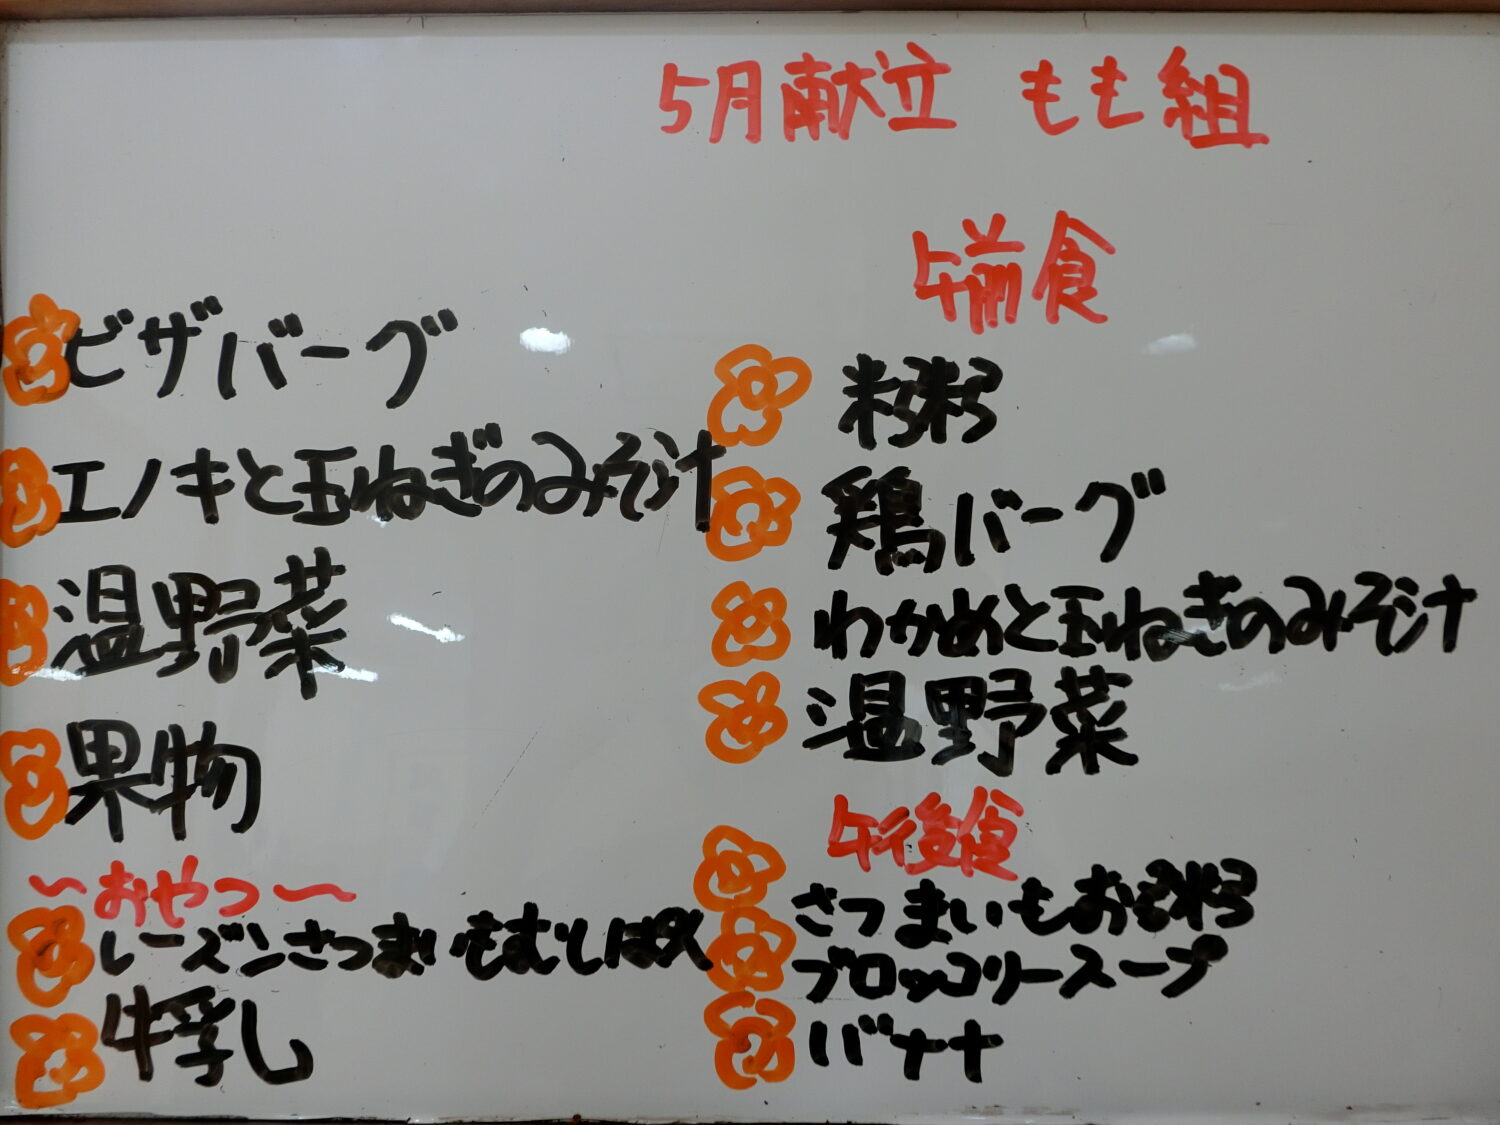 5月献立 もも組
ピザバーグ
エノキと玉ねぎのみそ汁
温野菜
果物
～おやつ～
レーズンさつまいもむしぱん
牛乳
午前食
鶏バーグ
わかめと玉ねぎのみそ汁
温野菜
午後食
さつまいもお粥
ブロッコリースープ
バナナ